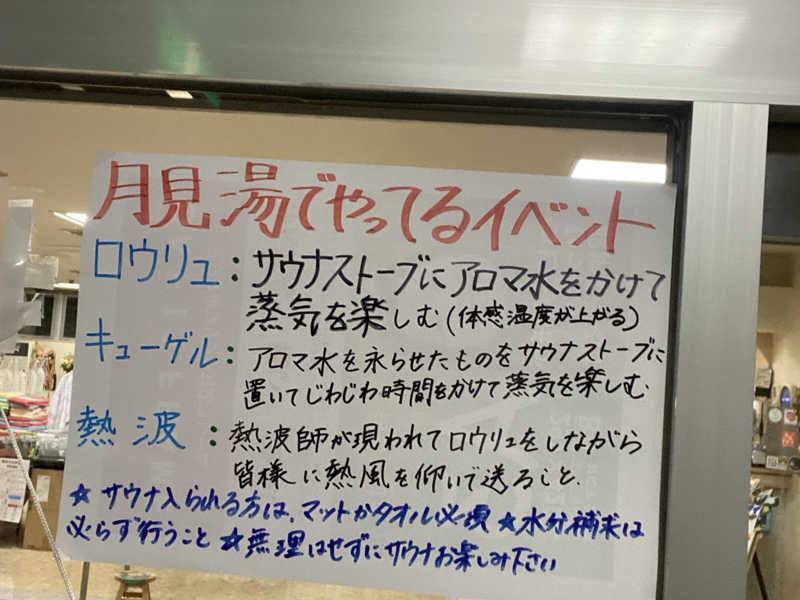 月見湯でやってるイベント
ロウリュ：サウナストーブにアロマ水をかけて
蒸気を楽しむ（体感温度が上がる）
キューゲル：アロマ水を永らせたものをサウナストーブに
置いてじわじわ時間をかけて蒸気を楽しむ
熱波：熱波師が現われてロウリュをしながら
皆様に熱風を仰いで送ること.
☆サウナ入られる方は、マットかタオル必須☆水分補求は
必らず行うこと☆無理はせずにサウナお楽しみ下さい